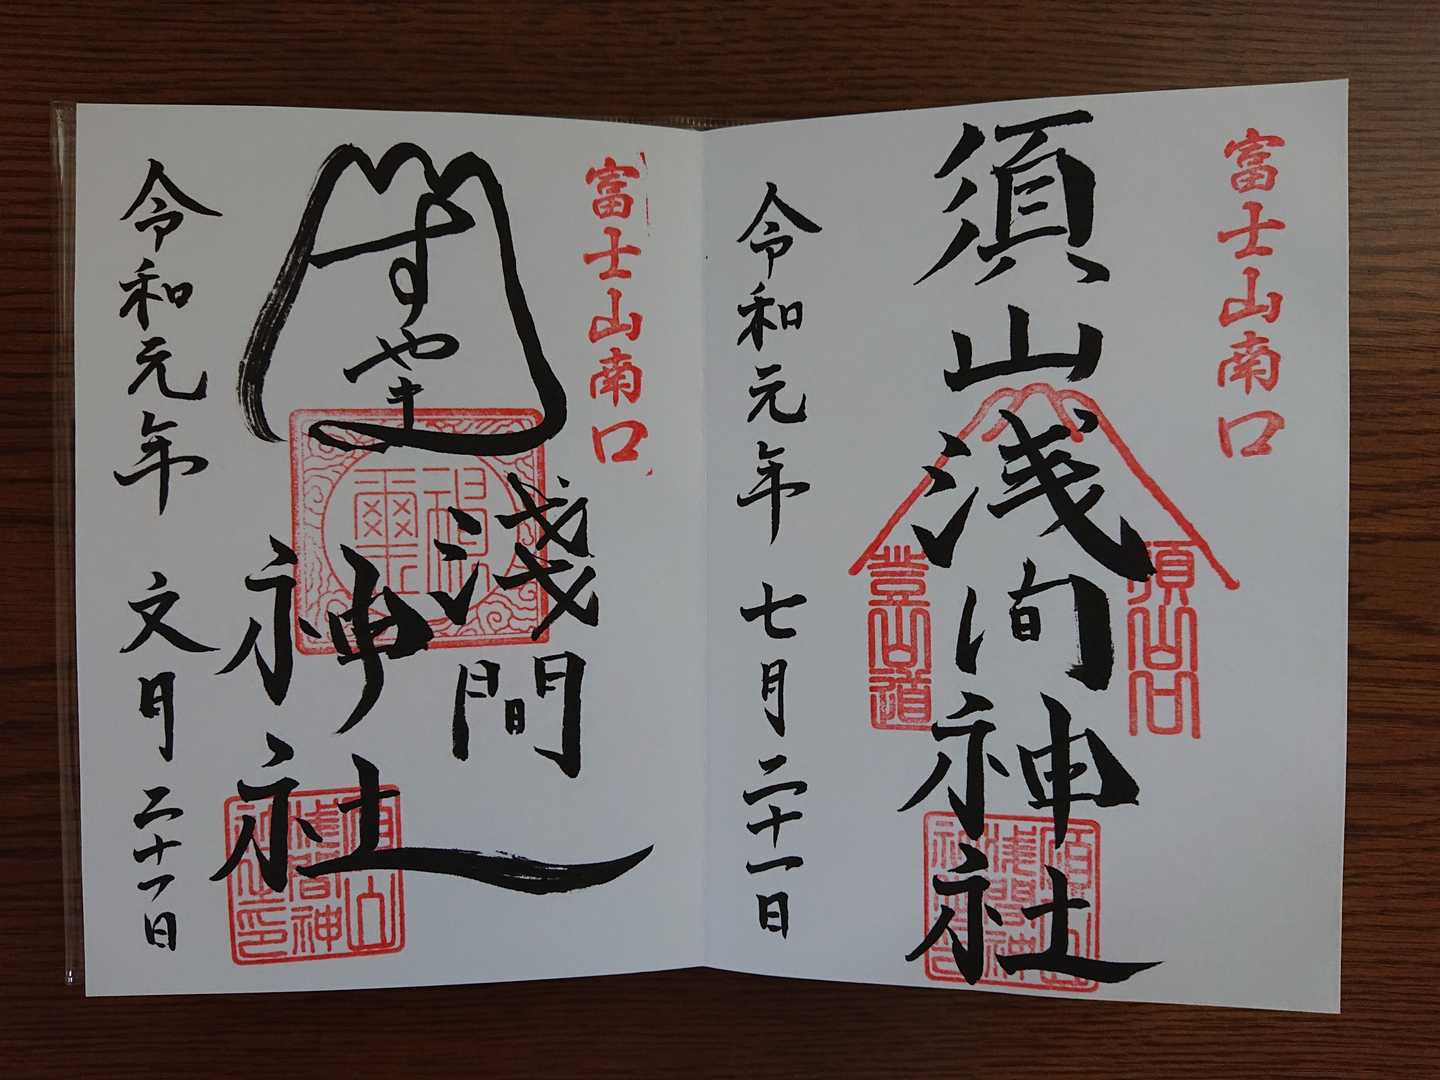 富士山南口
須山浅間神社
須山口
登山道
令和元年 七月二十一日
富士山南口
すやま
淺間
神社
令和元年 文月 二十一日